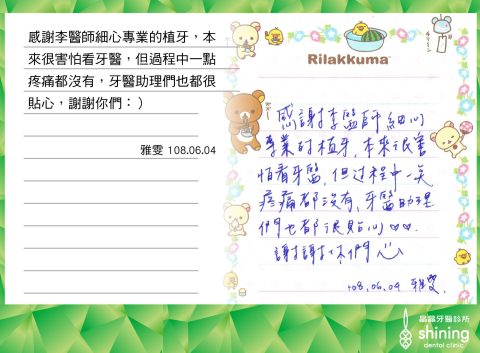 感謝李醫師細心專業的植牙，本
來很害怕看牙醫，但過程中一點
疼痛都沒有，牙醫助理們也都很
貼心，謝謝你們：）
雅雯 108.06.04
Rilakkuma™
感謝李醫師細心
專業的植牙,本來很害
怕看牙醫,但过程中一点
疼痛都沒有,牙醫助理
們也都很貼心♡♡.
謝謝你們♡
108.06.04 雅雯.
晶露牙醫診所
shining
dental clinic